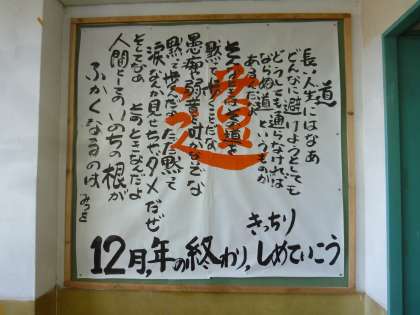 道
長い人生にはなあ
どんなに避けようとしても
どうしても通らなければ
ならぬ道というものが
あるんだな
そんなときはその道を
黙って歩くことだな
愚痴や弱音を吐かないでな
黙って歩くんだよ ただ黙って
涙なんか見せちゃダメだぜ
そしてなあ そのときなんだよ
人間としてのいのちの根が
ふかくなるのは
みつを
道
きっちり
12月,年の終わり,しめていこう